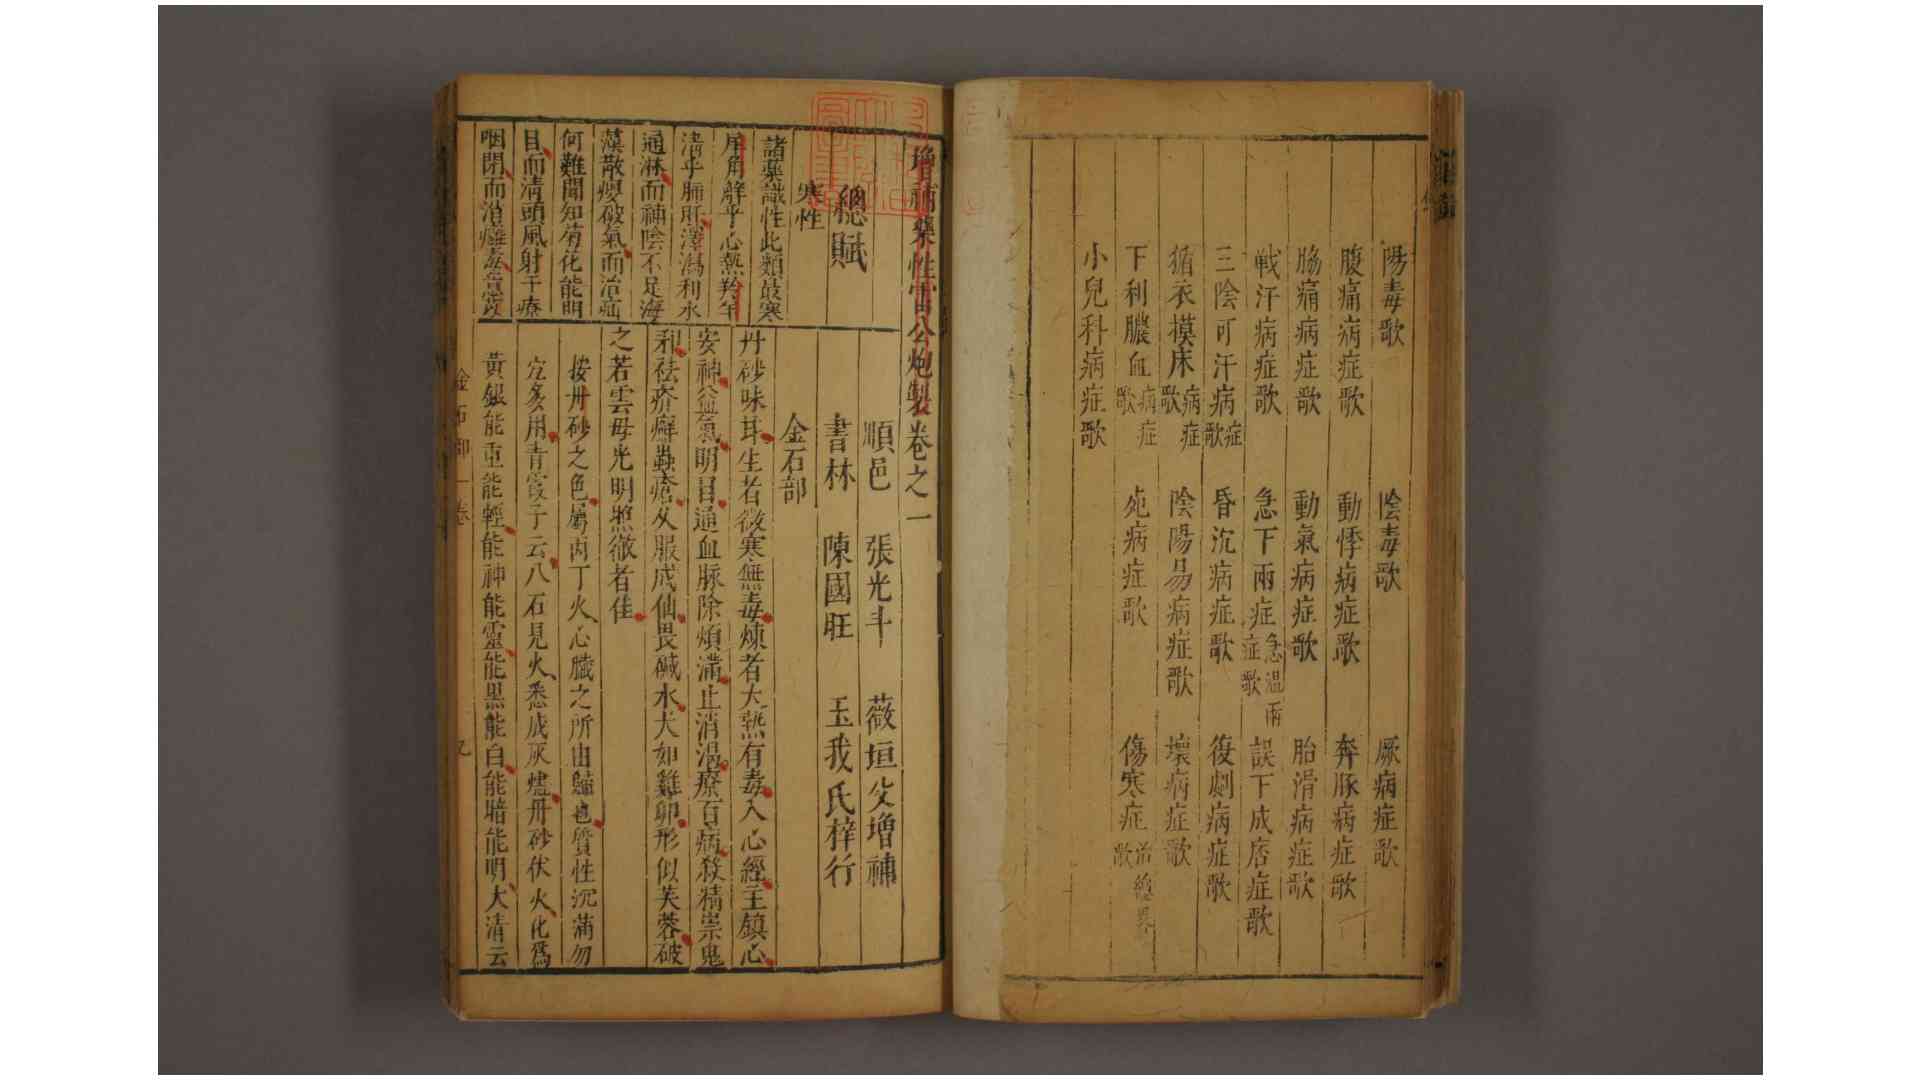 陽毒歌 陰毒歌 厥病症歌
腹痛病症歌 動悸病症歌 奔豚病症歌
脇痛病症歌 動氣病症歌 胎滑病症歌
戦汗病症歌 急下兩症急温兩症歌 誤下成痞症歌
三陰可汗病症歌 昏沉病症歌 復劇病症歌
循衣摸床病症歌 陰陽易病症歌 壞病症歌
下利膿血病症歌 死病症歌 傷寒症治總畧歌
小兒科病症歌
增補藥性雷公炮製卷之一
順邑 張光斗 薇垣父增補
書林 陳國旺 玉我氏梓行
總賦
寒性
諸藥識性此類最寒
犀角解乎心熱羚羊
清乎肺肝澤瀉利水
通淋而補陰不足海
藻散癭破氣而治疝
何難聞知菊花能明
目而清頭風射干療
咽閉而消癰毒薏苡
金石部
丹砂味甘生者微寒無毒煉者大熱有毒入心經主鎮心
安神益氣明目通血脉除煩滿止消渴療百病殺精祟鬼
邪祛疥癬蟲瘡久服成仙畏碱水大如雞卵形似芙蓉破
之若雲母光明照徹者佳
按丹砂之色屬丙丁火心臟之所由歸也質性沉滿勿
宜多用青霞子云八石見火悉成灰燼丹砂伏火化爲
黃銀能重能輕能神能靈能黑能白能暗能明大清云
金石部 一卷